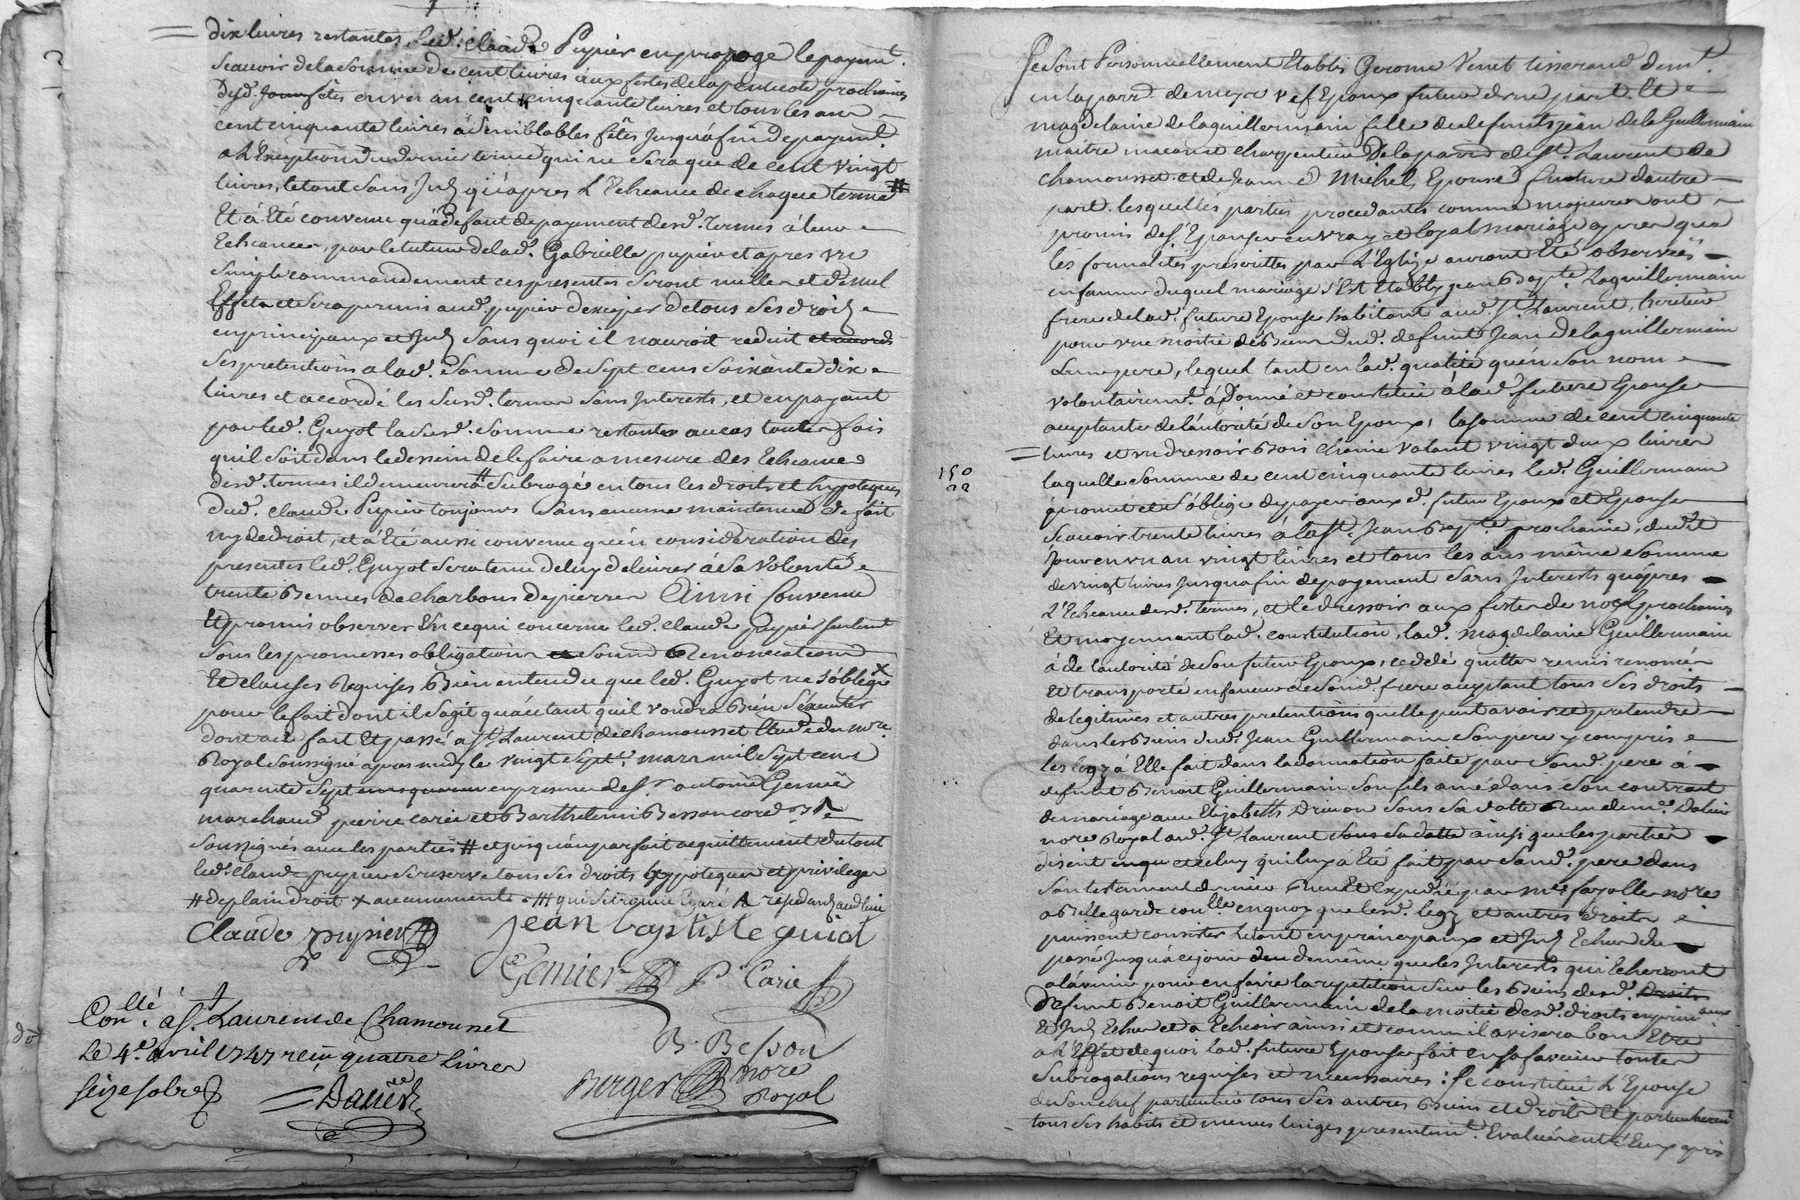 dix livres restantes, led. Claude Pupier en proroge le payemt.
Scavoir de la Somme de cent livres aux festes de la pentecote prochaines
Dud. Jour fêtes en un an cent cinquante livres et tous les ans
cent cinquante livres a Semblables fêtes Jusqu'a fin de payemt.
a L'Exeption du dernier terme qui ne Sera que de cent vingt
livres, le tout Sans Jnts qu'apres L'Echeance de chaque terme #
Et a Eté convenu qu'a Defaut de payement desd. termes a leur
Echeances, par le tuteur de lad. Gabrielle pupier et apres un
Simple commandement ces presentes Seront nulles et de nul
Effet et Sera permis aud. pupier d'exiger de tous Ses droits
en principaux et Jnts Sans quoi il n'auroit reduit et accordé
Ses pretentions a lad. Somme de Sept cens Soixante dix
livres et accordé les Susd. termes Sans Jnterests, et en payant
par led. Guyot la Susd. Somme restante au cas toute fois
qu'il Soit dans le dessein de le faire a mesure des Echeances
desd. termes il demeurera # Subrogé en tous les droits et hypoteques
Dud. Claude Pupier toujours Sans aucune maintenue de fait
ny de droit, et a Eté aussi convenu qu'en consideration des
presentes led. Guyot Sera tenu de luy delivrer a Sa Volonté
trente Bennes de charbons de pierres Ainsi Convenu
Et promis observer En ce qui concerne led. Claude pupier Seulemt
Sous les promesses obligations et Soumis Renonciations
Et clauses Requises Bien entendu que led. Guyot ne S'oblige x
pour le fait dont il S'agit qu'autant qu'il voudra Bien S'executer
dont acte fait Et passé a St. Laurent de chamousset Etude du nore.
Royal Soussigné apres midy le vingt Sept. mars mil Sept cent
quarente Sept en presence de Sr. antoine Gemier
marchand pierre carie et Barthelemi Besson
Soussignés avec les parties # et jusqu'au parfait acquittement du tout
led. Claude pupier Se reserve tous Ses droits hypoteques et privileges
# de plain droit x aucunement
Claude pupier
Jean baptiste guiot
Gemier P. Carie
B. Besson
Berger nore Royal
Conllé. a St. Laurent de Chamousset
Le 4e. avril 1747 reçu quatre livres
Seize Sols
do
Ce Sont Personnellement Etablis Gerome Venet tisserand demt.
en la parr. de meys Vef Epoux futur d'une part Et
magdelaine de la guillermain fille de defunts jean de la Guillermain
maitre macon et charpentier De la parr. de St. Laurent de
chamousset et de Jeanne Michel, Epouse future d'autre
part. lesquelles parties procedantes comme majeures ont
promis de S'Epouser en vray et loyal mariage apres que
les formalités prescrittes par L'Eglise auront Eté observées
en faveur duquel mariage S'Est Etably jean Bapte. Laguillermain
frere de lad. future Epouse habitant aud. St. Laurent, heritier
pour une moitié des Biens dud. defunt Jean de la guillermain
Leur pere, lequel tant en lad. qualité qu'en Son nom
volontairemt. a Donné et constitué a lad. future Epouse
acceptante de l'autorité de Son Epoux, la Somme de cent cinquante
livres et un dressoir Bois chaine valant vingt deux livres
150
22
laquelle Somme de cent cinquante livres led. Guillermain
promet et s'oblige de payer auxd. futur Epoux et Epouse
Scavoir trente livres a la St. Jean Bapte. prochaine, dud. it
Jour en un an vingt livres et tous les ans même Somme
de vingt livres Jusqu'a fin de payement Sans Jnterests qu'apres
L'Echeance desd. termes, et le dressoir aux festes de noel prochaines
Et moyennant lad. constitution, lad. magdelaine Guillermain
a de l'autorité de Son futur Epoux, cedde quitte remis renoncé
Et transporté en faveur de Sond. frere acceptant tous Ses droits
de legitimes et autres pretentions qu'elle peut avoir et pretendre
dans les Biens dud. Jean Guillermain Son pere y compris
les legs a Elle fait dans la donnation faite par Sond. pere a
defunt Benoit Guillermain Son fils ainé dans Son contrat
de mariage avec Elizabeth Drivon Sous Sa datte
nore Royal aud. St. Laurent Sous Sa datte ainsi que les parties
disent et celuy qui luy a Eté fait par Sond. pere dans
Son testament dernier Receu Et Expedié par Me fayolle nore
a Bellegarde Conllé. en quoy que lesd. legs et autres droits
puissent consister le tout en principaux et Jnts Echus du
passé Jusqu'a ce jour d'eu de même que les Jnterests qui Echerront
a l'avenir pour en faire la repetition Sur les Biens desd. droits
Defunt Benoit Guillermain de la moitié desd. droits en principaux
Et Jnts Echus et a Echeoir ainsi et comme il avisera bon Etre
a L'Effet de quoi lad. future Epouse fait en Sa faveur toutes
Subrogations requises et necessaires : Se constitue L'Epouse
de Son chef particulier tous Ses autres Biens et droits Et particulierement
tous Ses habits et menus linges presentemt. Evalués entre Eux apres